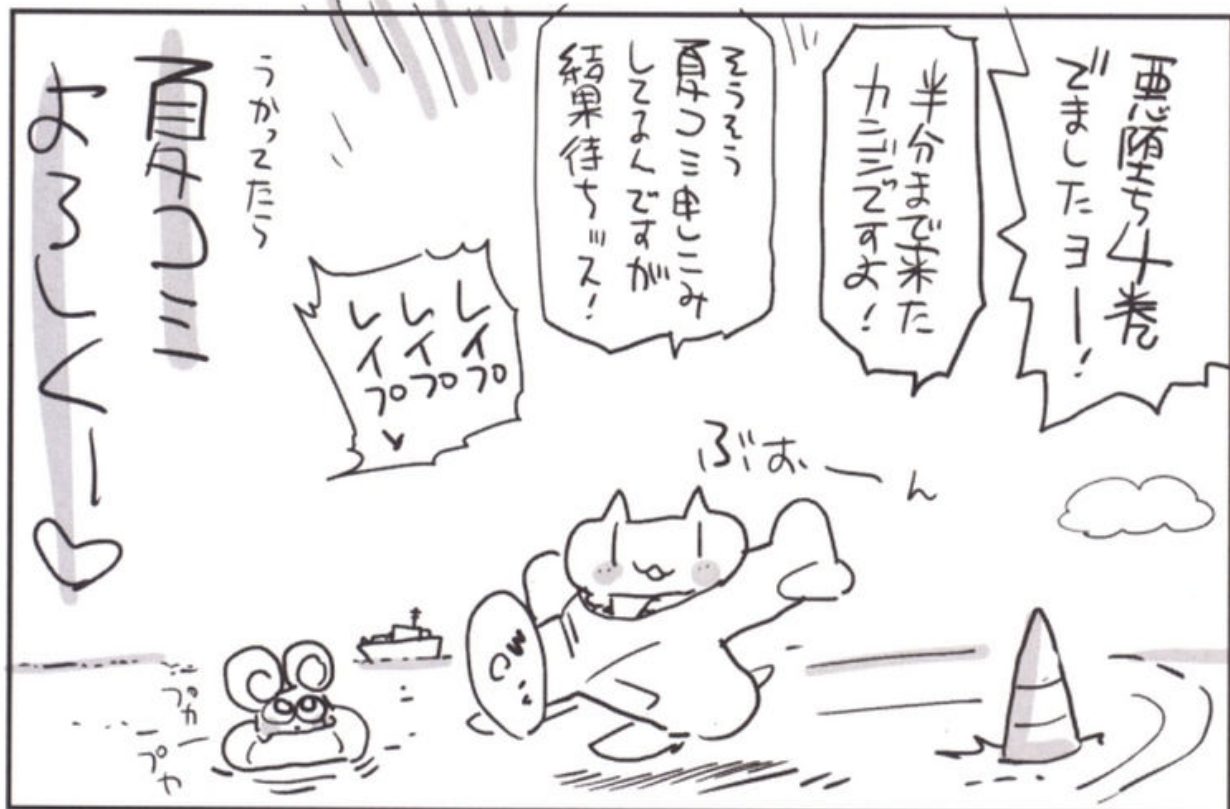 悪堕ち4巻
でましたヨー!
半分まで来た
カンジですよ!
そうそう
夏コミ申しこみ
してるんですが
結果待ちッス!
レイプ
レイプ
レイプ
うかってたら
夏コミ
よろしくー♡
ぶおーん
プカ
プカ